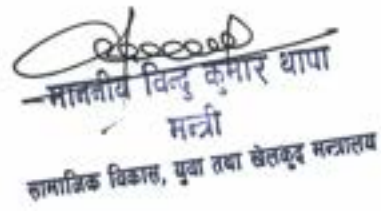 माननीय विन्दु कुमार थापा
मन्त्री
सामाजिक विकास, युवा तथा खेलकुद मन्त्रालय